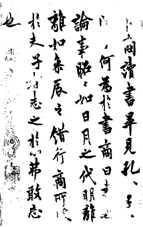 商讀書畢見孔子
何為於書商曰書
論事昭昭如日月之代明離
離如參辰之錯行商所
於夫子志之於弗敢忘
也